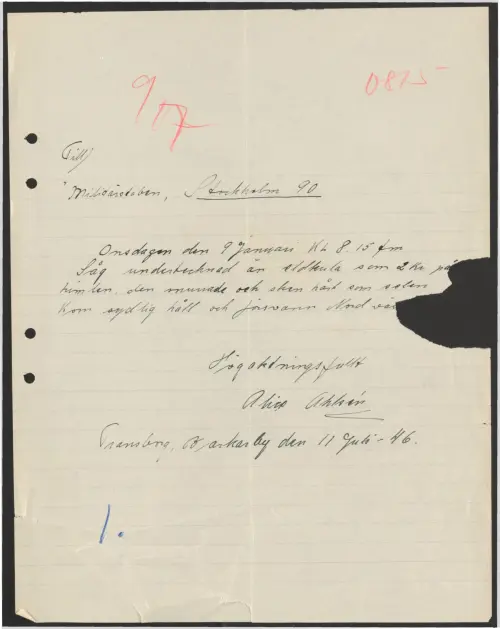 9/7
0815
Till
Militärstaben, Stockholm 90
Onsdagen den 9 Januari Kl. 8.15 fm
Såg undertecknad en eldkula som 2 Kr. på
himlen. den
och sken hårt som solen
Kom sydlig håll och försvann Nord
Högaktningsfullt
Alice Ahlén
Barkarby den 11 Juli - 46.
1.